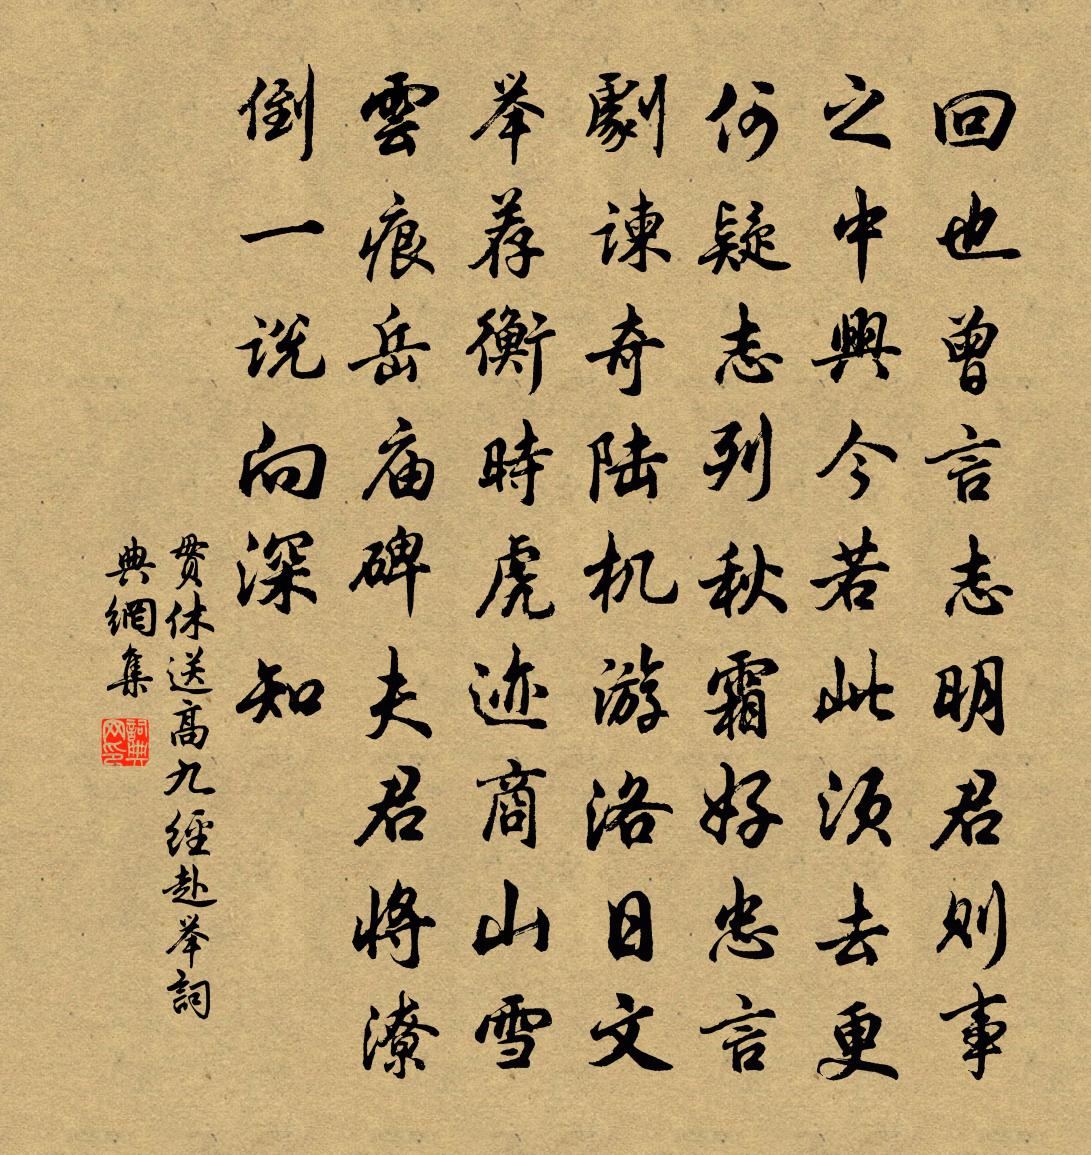 回也曾言志明君则事
之中興今若此须去更
何疑志列秋霜好忠言
劇谏奇陆机游洛日文
举荐衡時虎迹商山雪
雲痕岳庙碑夫君将潦
倒一说向深知
贯休送高九經赴举詞
典網集
詞典网印